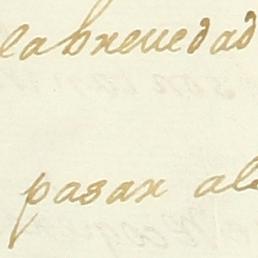 la brevedad
pasar al